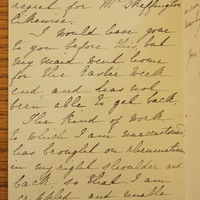 regret for Mr Skeffington
likewise.
I would have gone
to you before this, but
my maid went home
for the Easter week
end, and has not
been able to get back.
The kind of work
to which I am unaccustomed
has brought on rheumatism
in my right shoulder and
back so that I am
crippled and unable